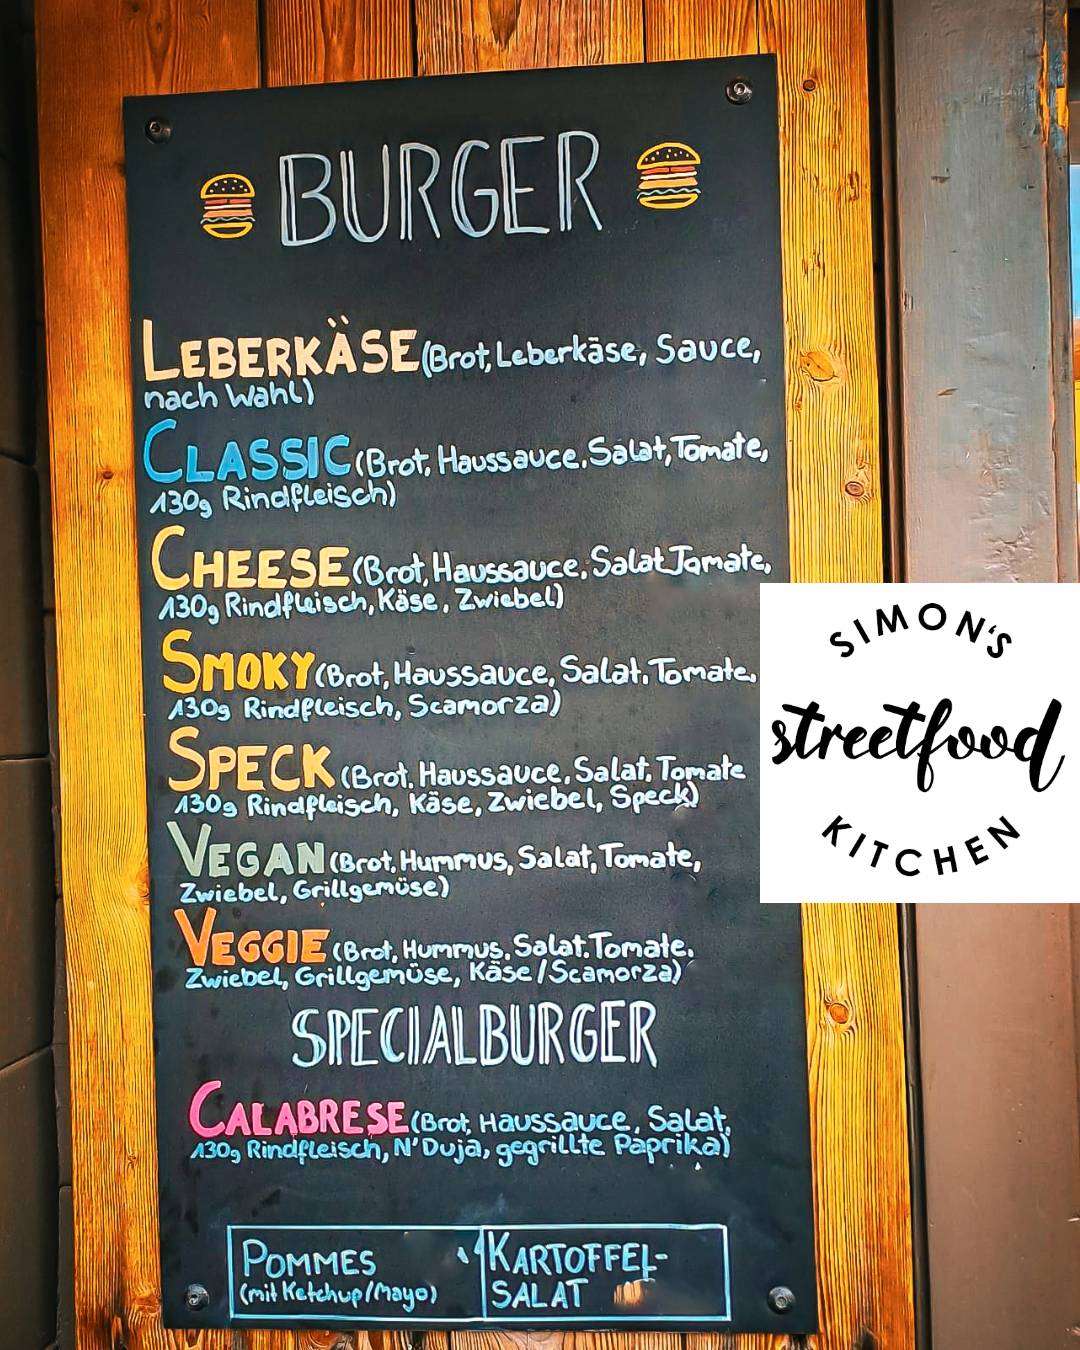 BURGER
LEBERKÄSE (Brot, Leberkäse, Sauce,
nach Wahl)
CLASSIC (Brot, Haussauce, Salat, Tomate,
130g Rindfleisch)
CHEESE (Brot, Haussauce, Salat, Tomate,
130g Rindfleisch, Käse, Zwiebel)
SMOKY (Brot, Haussauce, Salat, Tomate,
130g Rindfleisch, Scamorza)
SPECK (Brot, Haussauce, Salat, Tomate
130g Rindfleisch, Käse, Zwiebel, Speck)
VEGAN (Brot, Hummus, Salat, Tomate,
Zwiebel, Grillgemüse)
VEGGIE (Brot, Hummus, Salat, Tomate,
Zwiebel, Grillgemüse, Käse/Scamorza)
SPECIALBURGER
CALABRESE (Brot, Haussauce, Salat,
130g Rindfleisch, N'Duja, gegrillte Paprika)
POMMES
(mit Ketchup/Mayo)
KARTOFFEL-
SALAT
SIMON'S
streetfood
KITCHEN